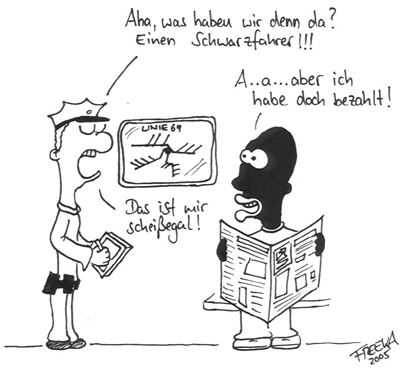 Aha, was haben wir denn da?
Einen Schwarzfahrer!!!
A..a...aber ich
habe doch bezahlt!
LINIE 69
Das ist mir
scheißegal!
FREEWA
2005